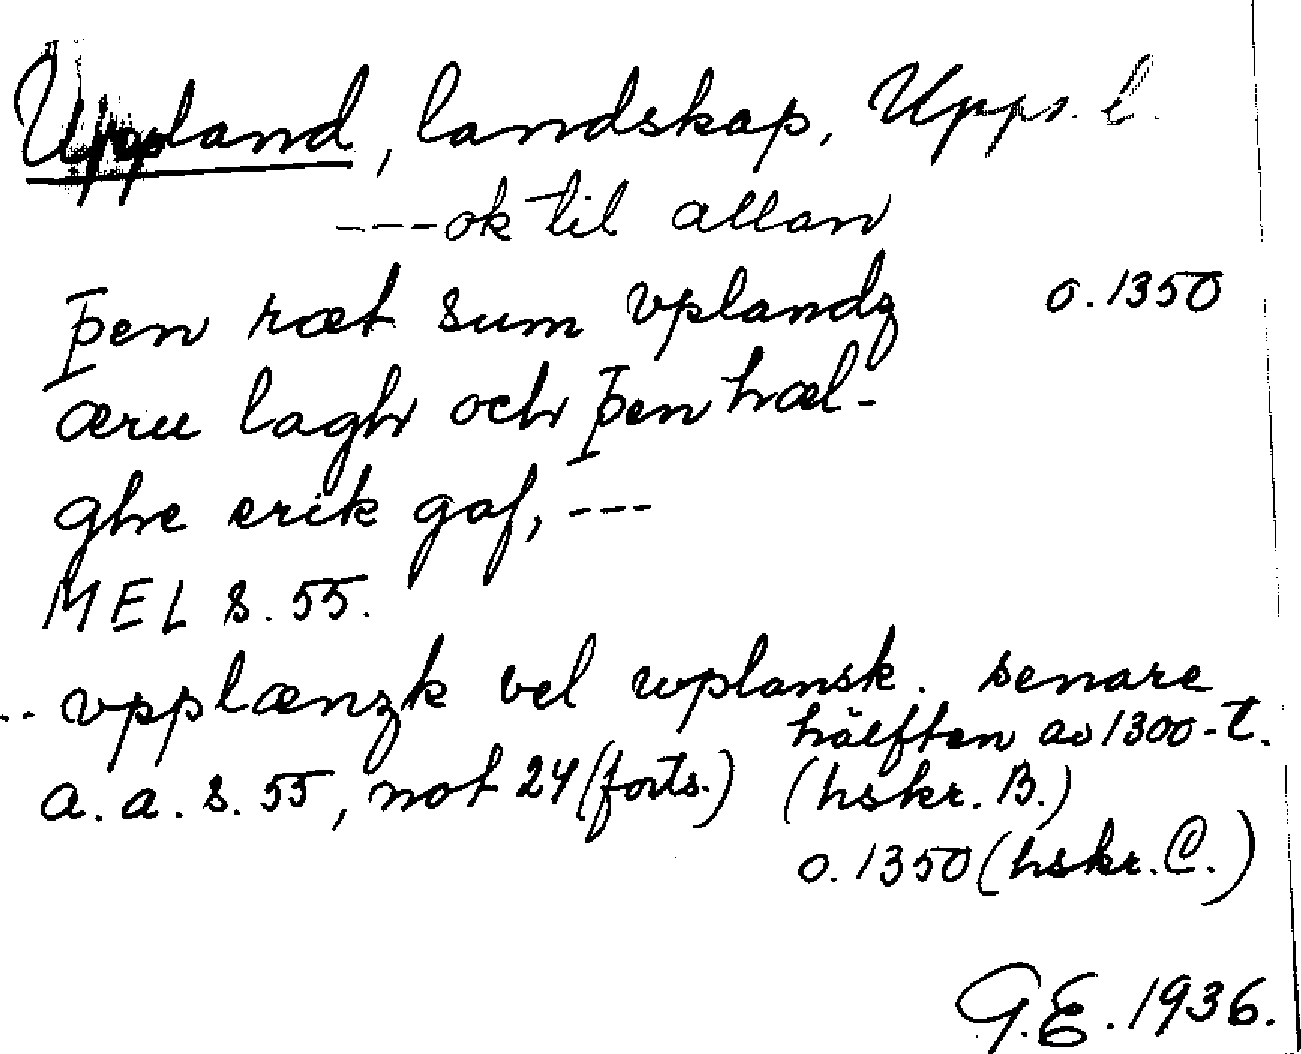 Uppland, landskap, Upps. l.
---ok til allan
þen ræt sum vplandz o. 1350
æru lagh och þen hæl-
ghe erik gaf, ---
MEL s. 55.
-- vpplænzk vel wplansk. senare
hälften av 1300-t.
a. a. s. 55, not 24 (forts.) (hskr. B.)
o. 1350 (hskr. C.)
G.E. 1936.